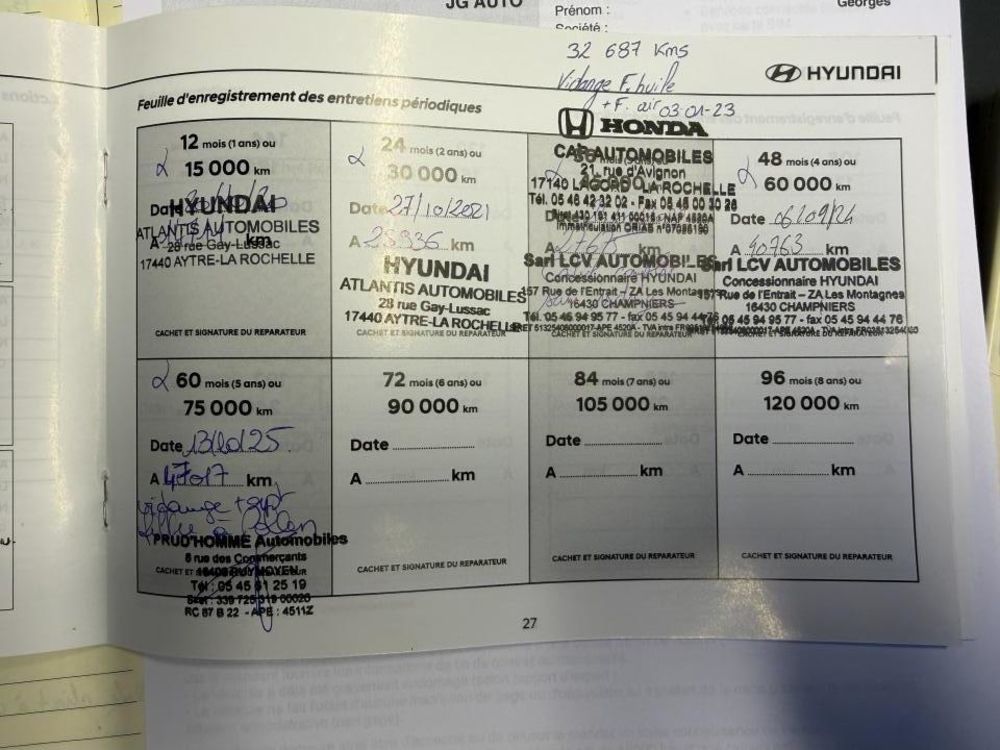 JG AUTO
Prénom :
Société :
Georges
32 687 Kms
Vidange F. huile
+ F. air 03-01-23
HYUNDAI
Feuille d'enregistrement des entretiens périodiques
HONDA
CAP AUTOMOBILES
21, rue d'Avignon
17140 LAGORD - LA ROCHELLE
Tél. 05 46 42 32 02 - Fax 05 46 00 30 26
12 mois (1 ans) ou
15 000 km
Date
HYUNDAI
ATLANTIS AUTOMOBILES
A km
28 rue Gay-Lussac
17440 AYTRE-LA ROCHELLE
CACHET ET SIGNATURE DU REPARATEUR
24 mois (2 ans) ou
30 000 km
Date 27/10/2021
A km
HYUNDAI
ATLANTIS AUTOMOBILES
28 rue Gay-Lussac
17440 AYTRE-LA ROCHELLE
CACHET ET SIGNATURE DU REPARATEUR
Sarl LCV AUTOMOBILES
Concessionnaire HYUNDAI
157 Rue de l'Entrait - ZA Les Montagnes
16430 CHAMPNIERS
Tél. 05 45 94 95 77 - fax 05 45 94 44 76
CACHET ET SIGNATURE DU REPARATEUR
48 mois (4 ans) ou
60 000 km
Date 06/09/24
A 40763 km
Sarl LCV AUTOMOBILES
Concessionnaire HYUNDAI
157 Rue de l'Entrait - ZA Les Montagnes
16430 CHAMPNIERS
Tél. 05 45 94 95 77 - fax 05 45 94 44 76
CACHET ET SIGNATURE DU REPARATEUR
60 mois (5 ans) ou
75 000 km
Date 13/10/25
A 47017 km
vidange +
PRUD'HOMME Automobiles
8 rue des Commerçants
CACHET ET
Tél : 05 45 61 25 19
RC 87 B 22 - APE : 4511Z
72 mois (6 ans) ou
90 000 km
Date
A km
CACHET ET SIGNATURE DU REPARATEUR
84 mois (7 ans) ou
105 000 km
Date
A km
CACHET ET SIGNATURE DU REPARATEUR
96 mois (8 ans) ou
120 000 km
Date
A km
CACHET ET SIGNATURE DU REPARATEUR
27